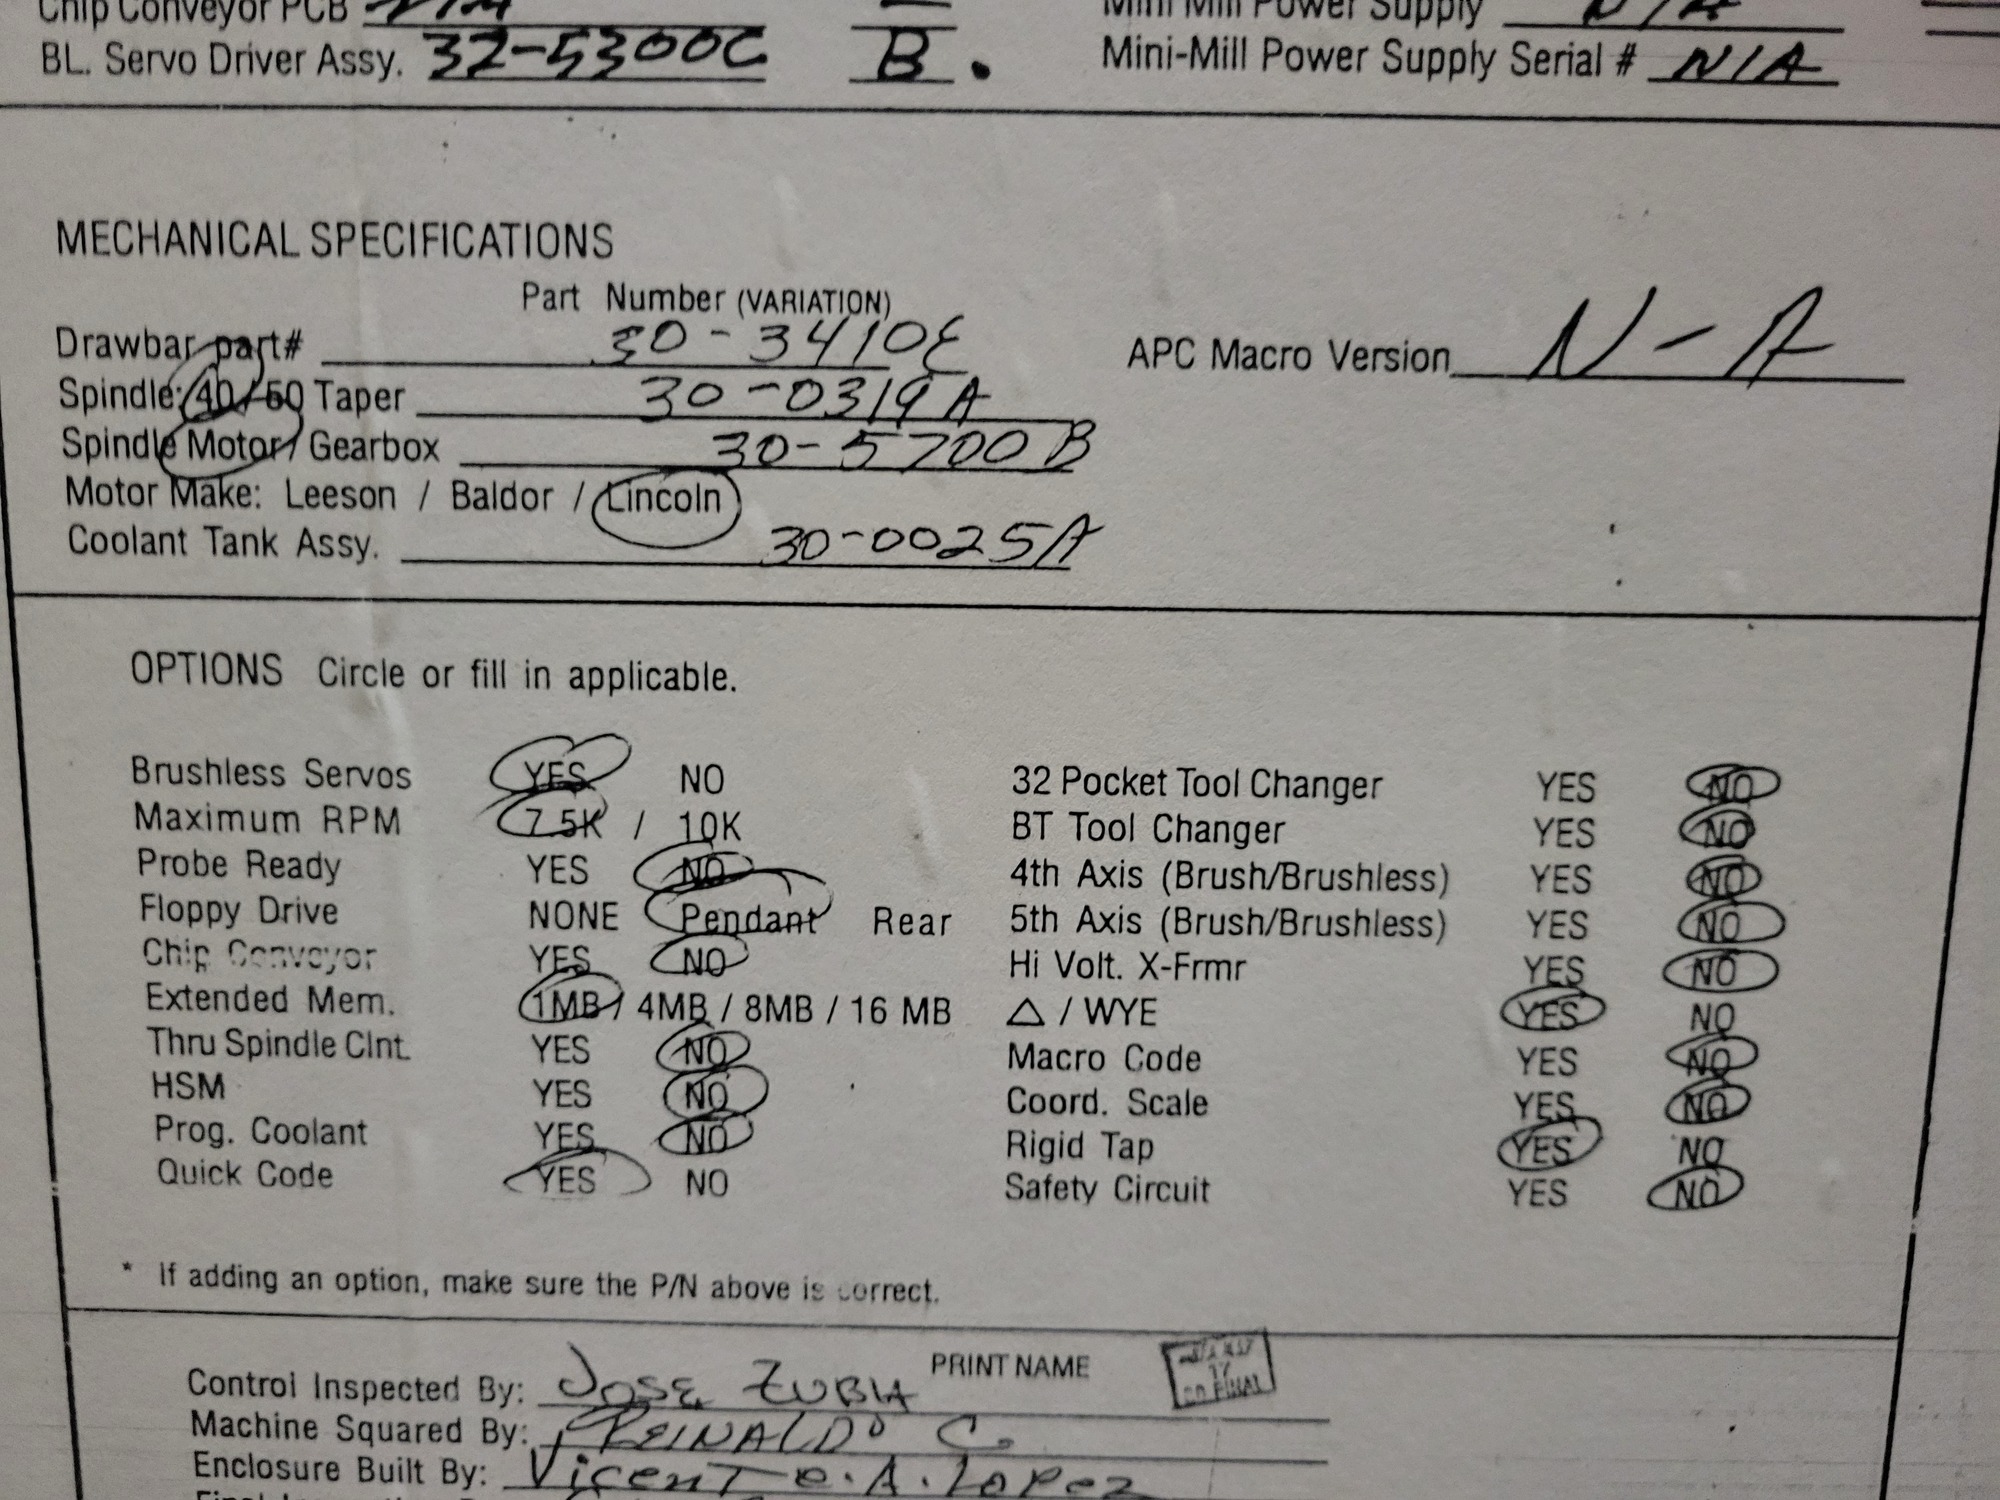 Chip Conveyor PCB N/A
BL. Servo Driver Assy. 32-5300C B.
Mini Mill Power Supply N/A
Mini-Mill Power Supply Serial # N/A
MECHANICAL SPECIFICATIONS
Part Number (VARIATION)
Drawbar part# 30-3410E
Spindle: 40/50 Taper 30-0319A
Spindle Motor / Gearbox 30-5700B
Motor Make: Leeson / Baldor / Lincoln
Coolant Tank Assy. 30-0025A
APC Macro Version N-A
OPTIONS Circle or fill in applicable.
Brushless Servos YES NO
Maximum RPM 7.5K / 10K
Probe Ready YES NO
Floppy Drive NONE Pendant Rear
Chip Conveyor YES NO
Extended Mem. 1MB / 4MB / 8MB / 16 MB
Thru Spindle Clnt. YES NO
HSM YES NO
Prog. Coolant YES NO
Quick Code YES NO
32 Pocket Tool Changer YES NO
BT Tool Changer YES NO
4th Axis (Brush/Brushless) YES NO
5th Axis (Brush/Brushless) YES NO
Hi Volt. X-Frmr YES NO
△ / WYE YES NO
Macro Code YES NO
Coord. Scale YES NO
Rigid Tap YES NO
Safety Circuit YES NO
* If adding an option, make sure the P/N above is correct.
PRINT NAME
Control Inspected By: JOSE ZUBIA
17
FINAL
Machine Squared By: REINALDO C.
Enclosure Built By: Vicente. A. Lopez